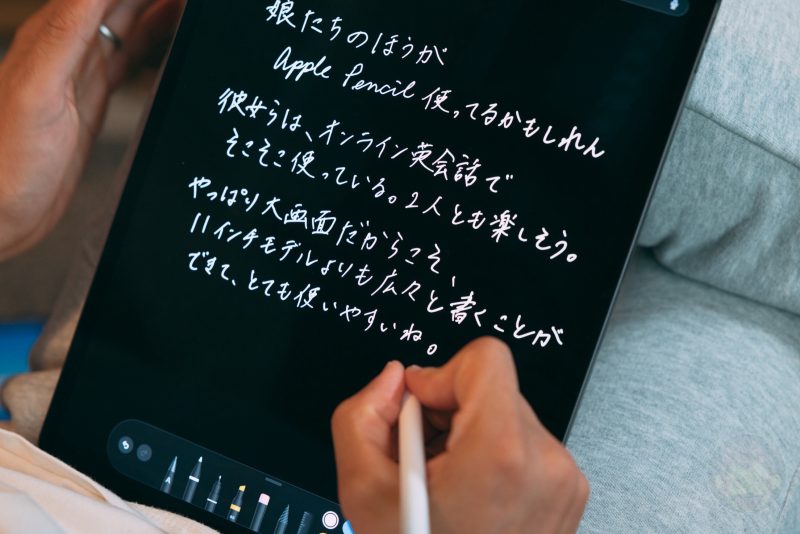 娘たちのほうが
Apple Pencil 使ってるかもしれん
彼女らは、オンライン英会話で
そこそこ使っている。2人とも楽しそう。
やっぱり大画面だからこそ、
11インチモデルよりも広々と書くことが
できて、とても使いやすいね。